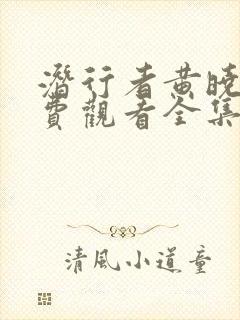 潛行者黄曉
費觀看全集
清風小道童